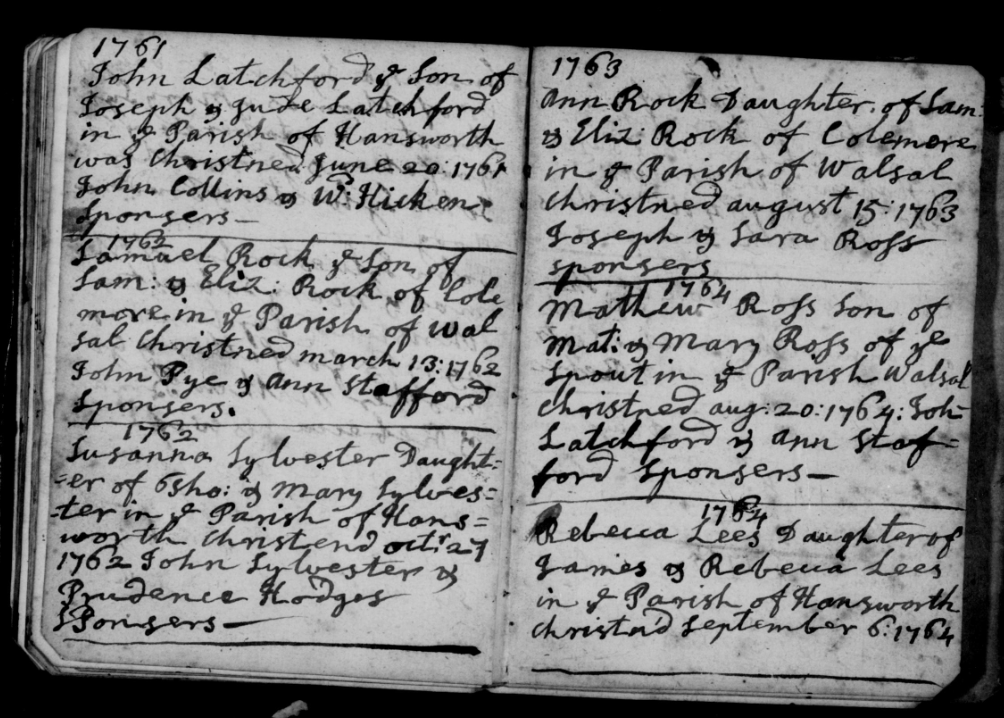 1761
John Latchford ye Son of
Joseph & Jude Latchford
in ye Parish of Hansworth
was Christned June 20: 1761
John Collins & Wm: Hicken
Sponsers —
1762
Samuel Rock ye Son of
Sam: & Eliz: Rock of Cole
more in ye Parish of Wal
sal Christned march 13: 1762
John Pye & Ann Stafford
Sponsers.
1762
Susanna Sylvester Daught=
=er of & Mary Sylves=
=ter in ye Parish of Hans=
worth Christend octr 27
1762 John Sylvester &
Prudence Hodges
SPonsers —
1763
Ann Rock Daughter of Sam:
& Eliz: Rock of Colemore
in ye Parish of Walsal
Christned august 15: 1763
Joseph & Sara Ross
sponsers
1764
Mathew Ross Son of
Mat: & Mary Ross of ye
Spout in ye Parish Walsal
Christned aug: 20: 1764: Joh
Latchford & Ann Staf=
ford Sponsers —
1764
Rebecca Lees Daughter of
James & Rebecca Lees
in ye Parish of Hansworth
Christn'd September 6: 1764